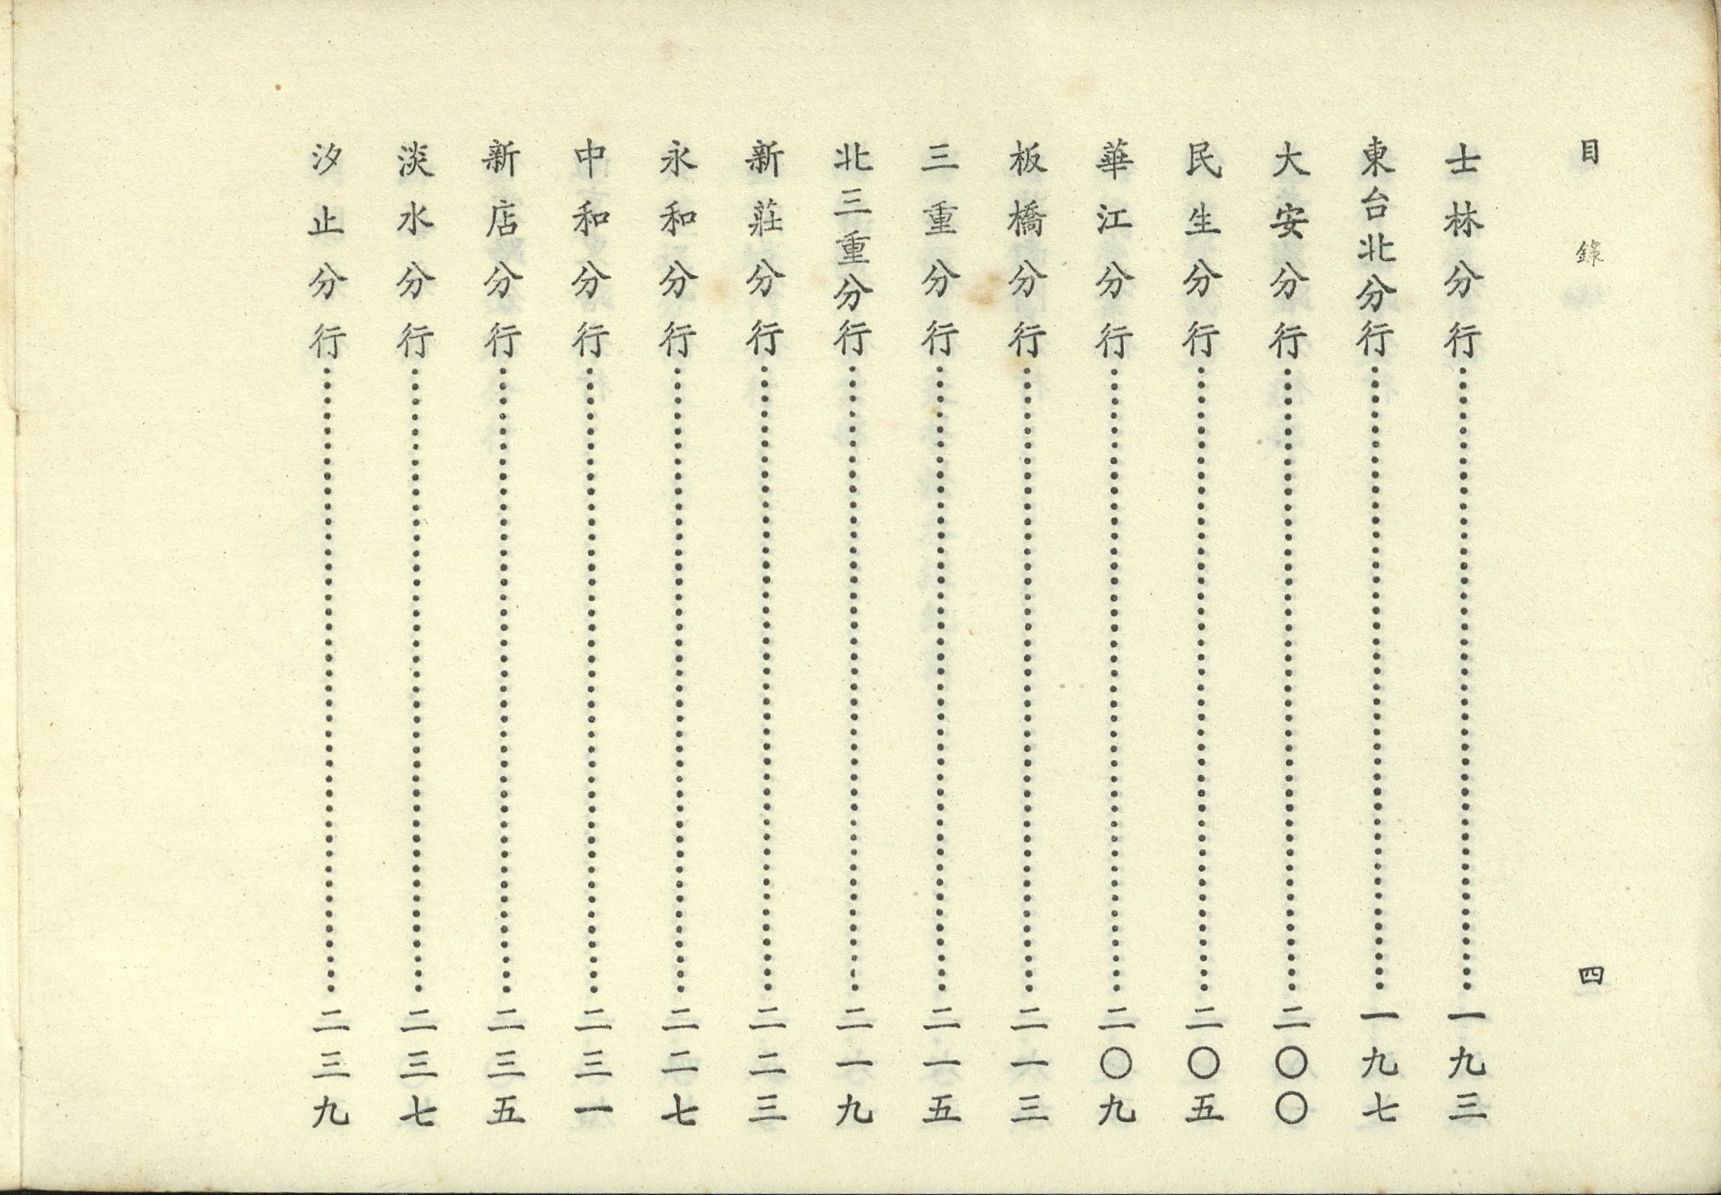 目錄　四
士林分行……一九三
東台北分行……一九七
大安分行……二〇〇
民生分行……二〇五
華江分行……二〇九
板橋分行……二一三
三重分行……二一五
北三重分行……二一九
新莊分行……二二三
永和分行……二二七
中和分行……二三一
新店分行……二三五
淡水分行……二三七
汐止分行……二三九